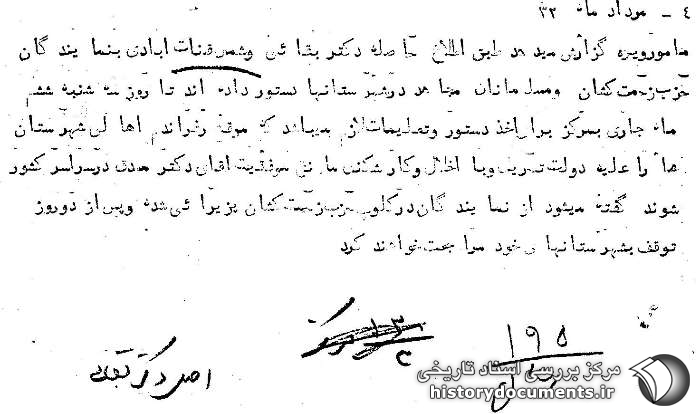 ٤ - مرداد ماه ٣٢
مامورویژه گزارش میدهد طبق اطلاع حاصله دکتر بقائی وشمس قنات ابادی بنمایندگان
حزب زحمت کشان ومسلمانان مجاهد درشهرستانها دستور داده اند تا روز سه شنبه ششم
ماه جاری بمرکز برای اخذ دستور وتعلیمات لازم بیایند که موقع رفراندم اهالی شهرستان
ها را علیه دولت تحریک وبا اخلال وکارشکنی مانع موفقیت اقای دکتر مصدق درسراسر کشور
شوند گفته میشود از نمایندگان درکلوب حزب زحمت کشان پذیرائی شده وپس از دوروز
توقف بشهرستانهای خود مراجعت خواهند کرد
١٩٥
اصل دکتر بقائی
مرکز بررسی اسناد تاریخی
historydocuments.ir